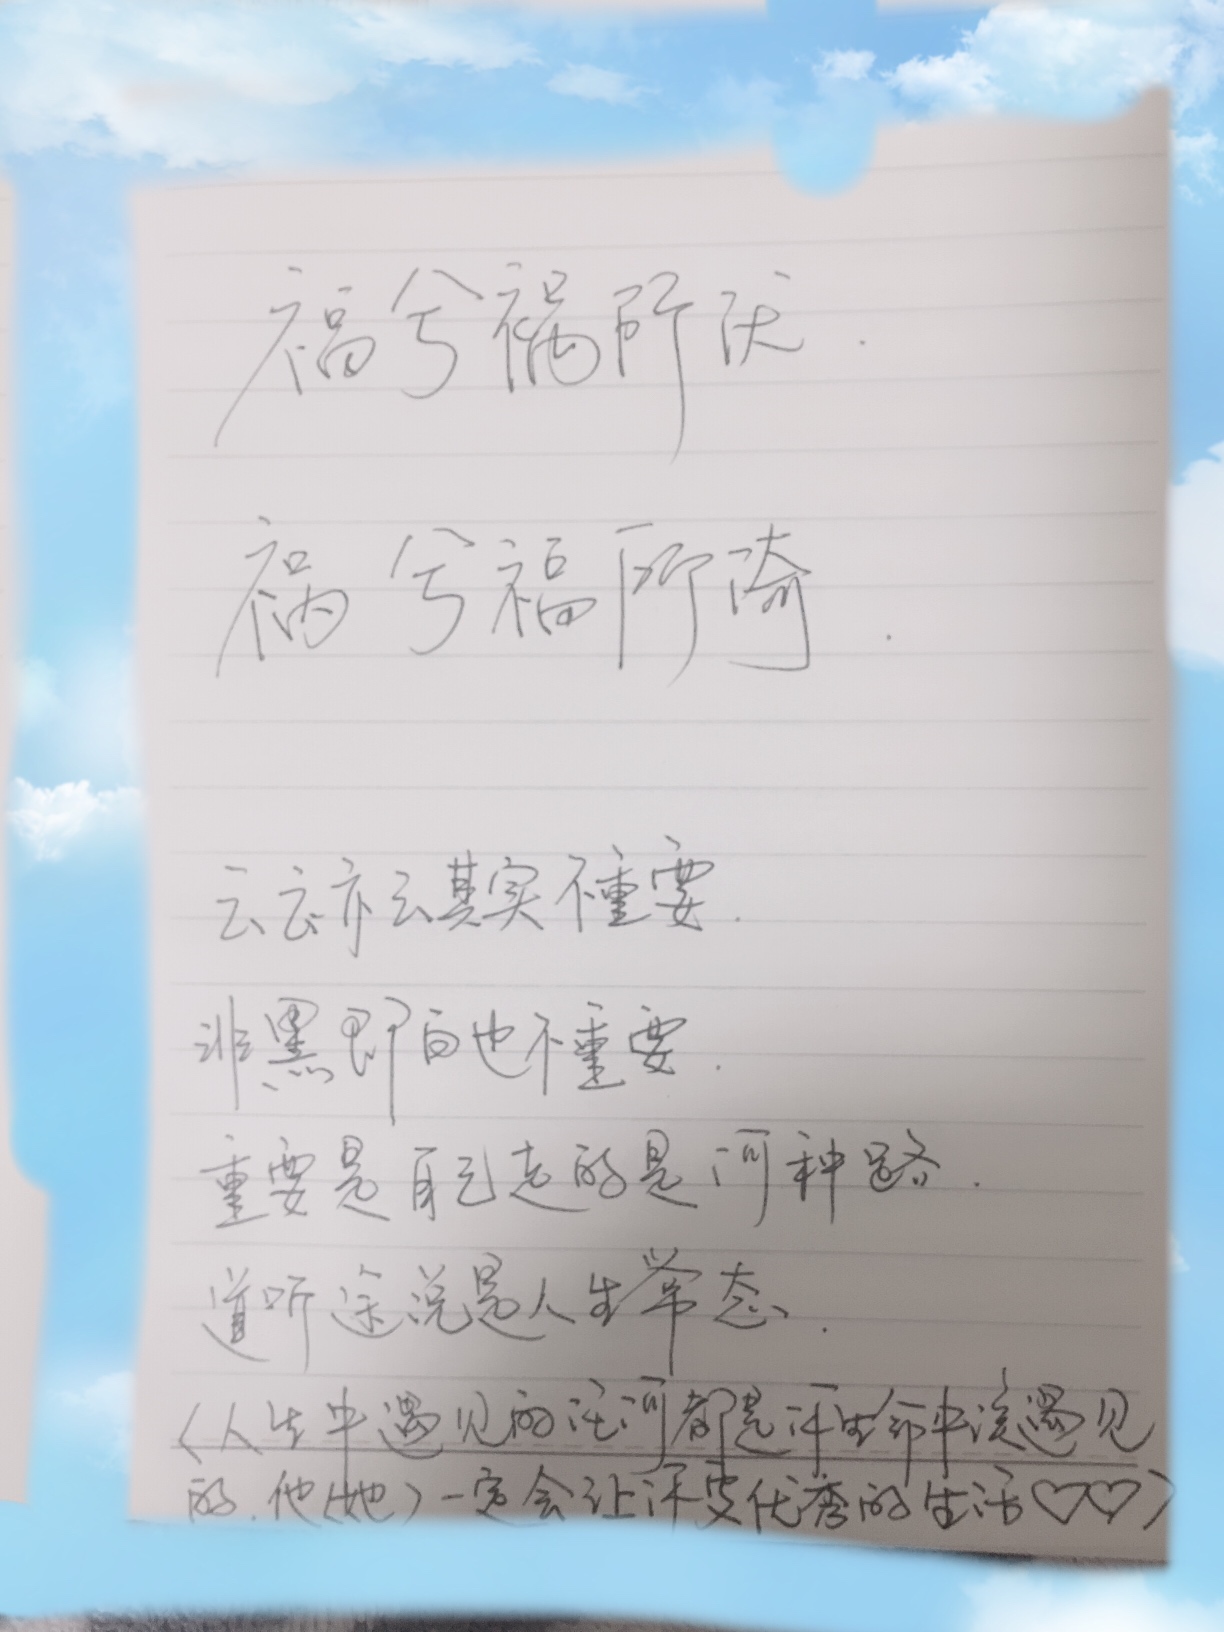 福兮祸所伏.
祸兮福所倚.
云云亦云其实不重要.
非黑即白也不重要.
重要是自己走的是何种路.
道听途说是人生常态.
(人生中遇见的任何都是你生命中该遇见
的.他(她)一定会让你变优秀的生活♡♡)